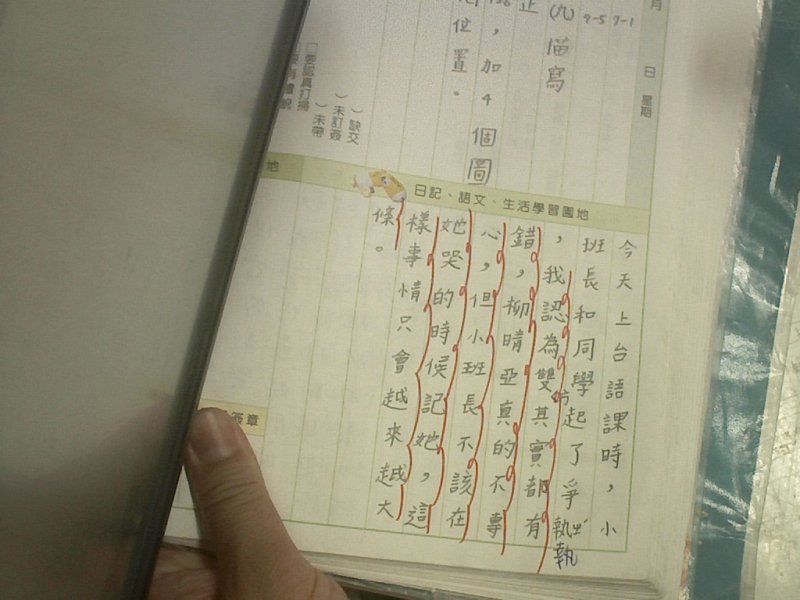 月 日 星期
7-1
9-5
(九)描寫
正
，加4個圖
位置。
)缺交
)未訂簽
)未帶
□要認真打掃
日記、語文、生活學習園地
今天上台語課時，小
班長和同學起了爭執
，我認為雙方其實都有
錯，柳晴亞真的不專
心，但小班長不該在
她哭的時候記她，這
樣事情只會越來越大
條。
地
簽章